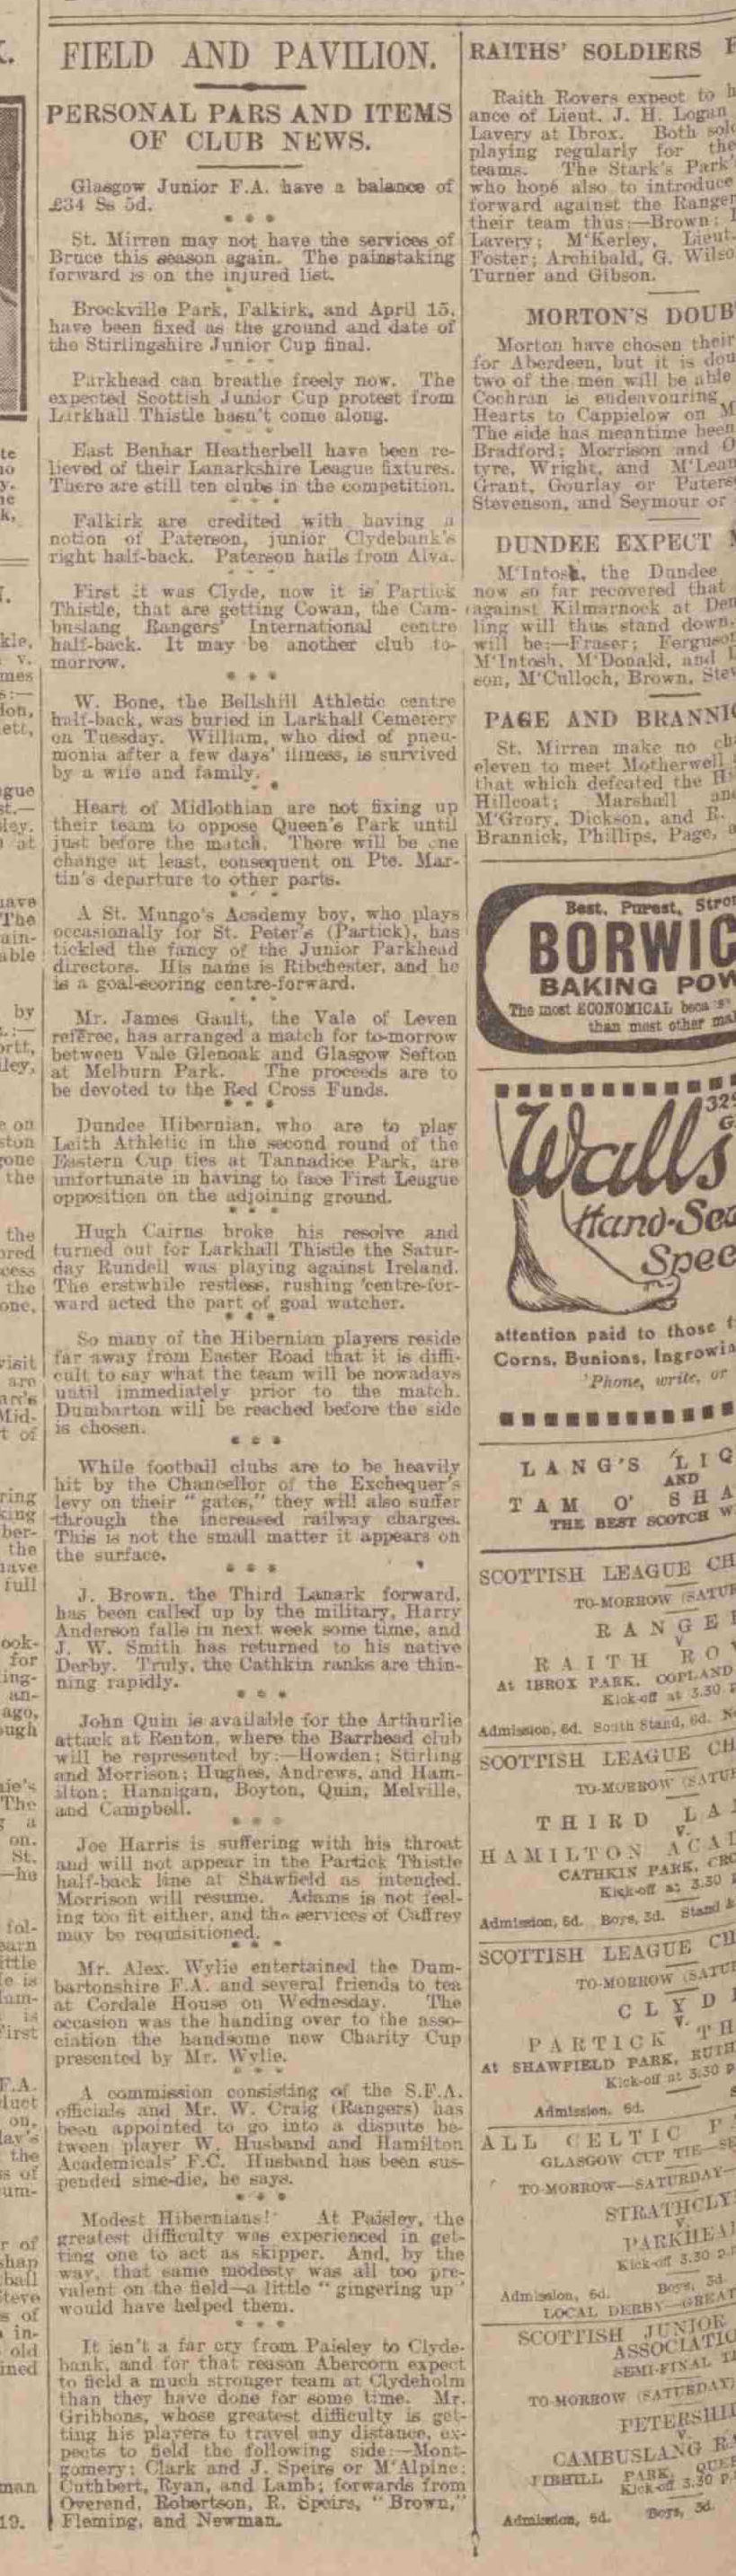 FIELD AND PAVILION.
PERSONAL PARS AND ITEMS
OF CLUB NEWS.
Glasgow Junior F.A. have a balance of
£34 8s 5d.
St. Mirren may not have the services of
Bruce this season again. The painstaking
forward is on the injured list.
Brockville Park, Falkirk, and April 15,
have been fixed as the ground and date of
the Stirlingshire Junior Cup final.
Parkhead can breathe freely now. The
expected Scottish Junior Cup protest from
Larkhall Thistle hasn't come along.
East Benhar Heatherbell have been re-
lieved of their Lanarkshire League fixtures.
There are still ten clubs in the competition.
Falkirk are credited with having a
notion of Paterson, junior Clydebank's
right half-back. Paterson hails from Alva.
First it was Clyde, now it is Partick
Thistle, that are getting Cowan, the Cam-
buslang Rangers' International centre
half-back. It may be another club to-
morrow.
W. Bone, the Bellshill Athletic centre
half-back, was buried in Larkhall Cemetery
on Tuesday. William, who died of pneu-
monia after a few days' illness, is survived
by a wife and family.
Heart of Midlothian are not fixing up
their team to oppose Queen's Park until
just before the match. There will be one
change at least, consequent on Pte. Mar-
tin's departure to other parts.
A St. Mungo's Academy boy, who plays
occasionally for St. Peter's (Partick), has
tickled the fancy of the Junior Parkhead
directors. His name is Ribchester, and he
is a goal-scoring centre-forward.
Mr. James Gault, the Vale of Leven
referee, has arranged a match for to-morrow
between Vale Glenoak and Glasgow Sefton
at Melburn Park. The proceeds are to
be devoted to the Red Cross Funds.
Dundee Hibernian, who are to play
Leith Athletic in the second round of the
Eastern Cup ties at Tannadice Park, are
unfortunate in having to face First League
opposition on the adjoining ground.
Hugh Cairns broke his resolve and
turned out for Larkhall Thistle the Satur-
day Rundell was playing against Ireland.
The erstwhile restless, rushing centre-for-
ward acted the part of goal watcher.
So many of the Hibernian players reside
far away from Easter Road that it is diffi-
cult to say what the team will be nowadays
until immediately prior to the match.
Dumbarton will be reached before the side
is chosen.
While football clubs are to be heavily
hit by the Chancellor of the Exchequer's
levy on their "gates," they will also suffer
through the increased railway charges.
This is not the small matter it appears on
the surface.
J. Brown, the Third Lanark forward,
has been called up by the military, Harry
Anderson falls in next week some time, and
J. W. Smith has returned to his native
Derby. Truly, the Cathkin ranks are thin-
ning rapidly.
John Quin is available for the Arthurlie
attack at Renton, where the Barrhead club
will be represented by:—Howden; Stirling
and Morrison; Hughes, Andrews, and Ham-
ilton; Hannigan, Boyton, Quin, Melville,
and Campbell.
Joe Harris is suffering with his throat
and will not appear in the Partick Thistle
half-back line at Shawfield as intended.
Morrison will resume. Adams is not feel-
ing too fit either, and the services of Caffrey
may be requisitioned.
Mr. Alex. Wylie entertained the Dum-
bartonshire F.A. and several friends to tea
at Cordale House on Wednesday. The
occasion was the handing over to the asso-
ciation the handsome new Charity Cup
presented by Mr. Wylie.
A commission consisting of the S.F.A.
officials and Mr. W. Craig (Rangers) has
been appointed to go into a dispute be-
tween player W. Husband and Hamilton
Academicals' F.C. Husband has been sus-
pended sine-die, he says.
Modest Hibernians! At Paisley, the
greatest difficulty was experienced in get-
ting one to act as skipper. And, by the
way, that same modesty was all too pre-
valent on the field—a little "gingering up"
would have helped them.
It isn't a far cry from Paisley to Clyde-
bank, and for that reason Abercorn expect
to field a much stronger team at Clydeholm
than they have done for some time. Mr.
Gribbons, whose greatest difficulty is get-
ting his players to travel any distance, ex-
pects to field the following side:—Mont-
gomery; Clark and J. Speirs or M'Alpine;
Cuthbert, Ryan, and Lamb; forwards from
Overend, Robertson, R. Speirs, "Brown,"
Fleming, and Newman.
RAITHS' SOLDIERS
Raith Rovers expect to
ance of Lieut. J. H. Logan
Lavery at Ibrox. Both
playing regularly for the
teams. The Stark's Park
who hope also to introduce
forward against the Ranger
their team thus:—Brown;
Lavery; M'Kerley, Lieut.
Foster; Archibald, G. Wilso
Turner and Gibson.
MORTON'S DOUB
Morton have chosen their
for Aberdeen, but it is dou
two of the men will be able
Cochran is endeavouring
Hearts to Cappielow on M
The side has meantime been
Bradford; Morrison and O
tyre, Wright, and M'Lean
Grant, Gourlay or Paters
Stevenson, and Seymour or
DUNDEE EXPECT
M'Intosh, the Dundee
now so far recovered that
against Kilmarnock at Den
ling will thus stand down.
will be:—Fraser; Ferguson
M'Intosh, M'Donald, and
son, M'Culloch, Brown, Stev
PAGE AND BRANNI
St. Mirren make no ch
eleven to meet Motherwell
that which defeated the Hi
Hillcoat; Marshall and
M'Grory, Dickson, and R.
Brannick, Phillips, Page, a
Best, Purest, Stron
BORWIC
BAKING POW
The most ECONOMICAL because
than most other ma
329
G
Walls
Hand-Se
Spec
attention paid to those
Corns, Bunions, Ingrowin
'Phone, write, or
LANG'S LIQ
AND
TAM O' SHA
THE BEST SCOTCH W
SCOTTISH LEAGUE CH
TO-MORROW (SATUR
RANGE
V
RAITH ROV
At IBROX PARK, COPLAND
Kick-off at 3.30 P
Admission, 6d. South Stand, 6d.
SCOTTISH LEAGUE CH
TO-MORROW (SATU
THIRD LA
v.
HAMILTON ACA
CATHKIN PARK, CRO
Kick-off at 3.30
Admission, 6d. Boys, 3d. Stand
SCOTTISH LEAGUE CH
TO-MORROW (SATU
CLYD
v.
PARTICK TH
At SHAWFIELD PARK, RUTH
Kick-off at 3.30 p
Admission, 6d.
ALL CELTIC P
GLASGOW CUP TIE—SE
TO-MORROW—SATURDAY—
STRATHCLY
v.
PARKHEA
Kick-off 3.30 p.m
Admission, 6d. Boys, 3d
LOCAL DERBY—GREAT
SCOTTISH JUNIOR
ASSOCIATIO
SEMI-FINAL TI
TO-MORROW (SATURDAY)
PETERSHI
v.
CAMBUSLANG RA
FIRHILL PARK, QUE
Kick-off 3.30 p.
Admission, 6d. Boys, 3d.